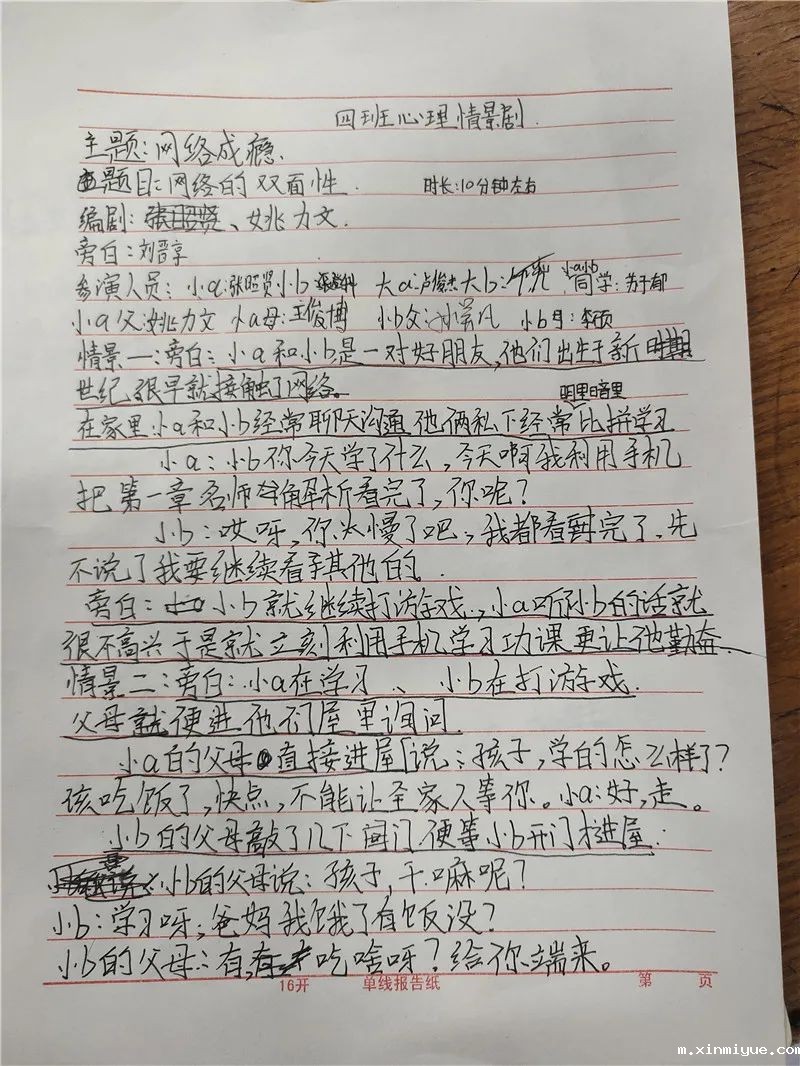 四班心理情景剧.
主题:网络成瘾.
题目:网络的双面性. 时长:10分钟左右
编剧:张昭贤、姚力文.
旁白:刘晋享
参演人员:小a:张昭贤小b 大a:卢俊杰大b: 小a小b同学:苏于郁
小a父:姚力文 小a母:王俊博 小b父: 小b母:李硕
情景一:旁白:小a和小b是一对好朋友,他们出生于新时期
世纪很早就接触了网络。 明里暗里
在家里小a和小b经常聊天沟通他俩私下经常比拼学习
小a:小b你今天学了什么,今天啊我利用手机
把第一章名师解析看完了,你呢?
小b:哎呀,你太慢了吧,我都看到完了,先
不说了我要继续看其他的.
旁白:小b就继续打游戏.,小a听小b的话就
很不高兴于是就立刻利用手机学习功课更让他勤奋
情景二:旁白:小a在学习、小b在打游戏.
父母就便进他们屋里询问.
小a的父母直接进屋说:孩子,学的怎么样了?
该吃饭了,快点,不能让全家人等你。小a:好,走。
小b的父母敲了几下闹门便等小b开门才进屋.
小b的父母说:孩子,干嘛呢?
小b:学习呀,爸妈我饿了有饭没?
小b的父母:有,有吃啥呀?给你端来。
16开 单线报告纸 第 页
m.xinmiyue.com